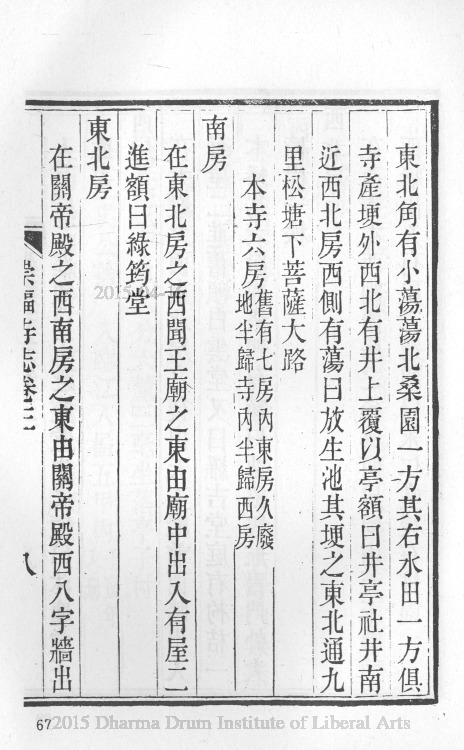 東北角有小蕩蕩北桑園一方其右水田一方俱
寺產埂外西北有井上覆以亭額曰井亭社井南
近西北房西側有蕩曰放生池其埂之東北通九
里松塘下菩薩大路
本寺六房舊有七房內東房久廢地半歸寺內半歸西房
南房
在東北房之西聞王廟之東由廟中出入有屋二
進額曰綠筠堂
東北房
在關帝殿之西南房之東由關帝殿西八字牆出
崇福寺志卷三
八
67
2015 Dharma Drum Institute of Liberal Arts